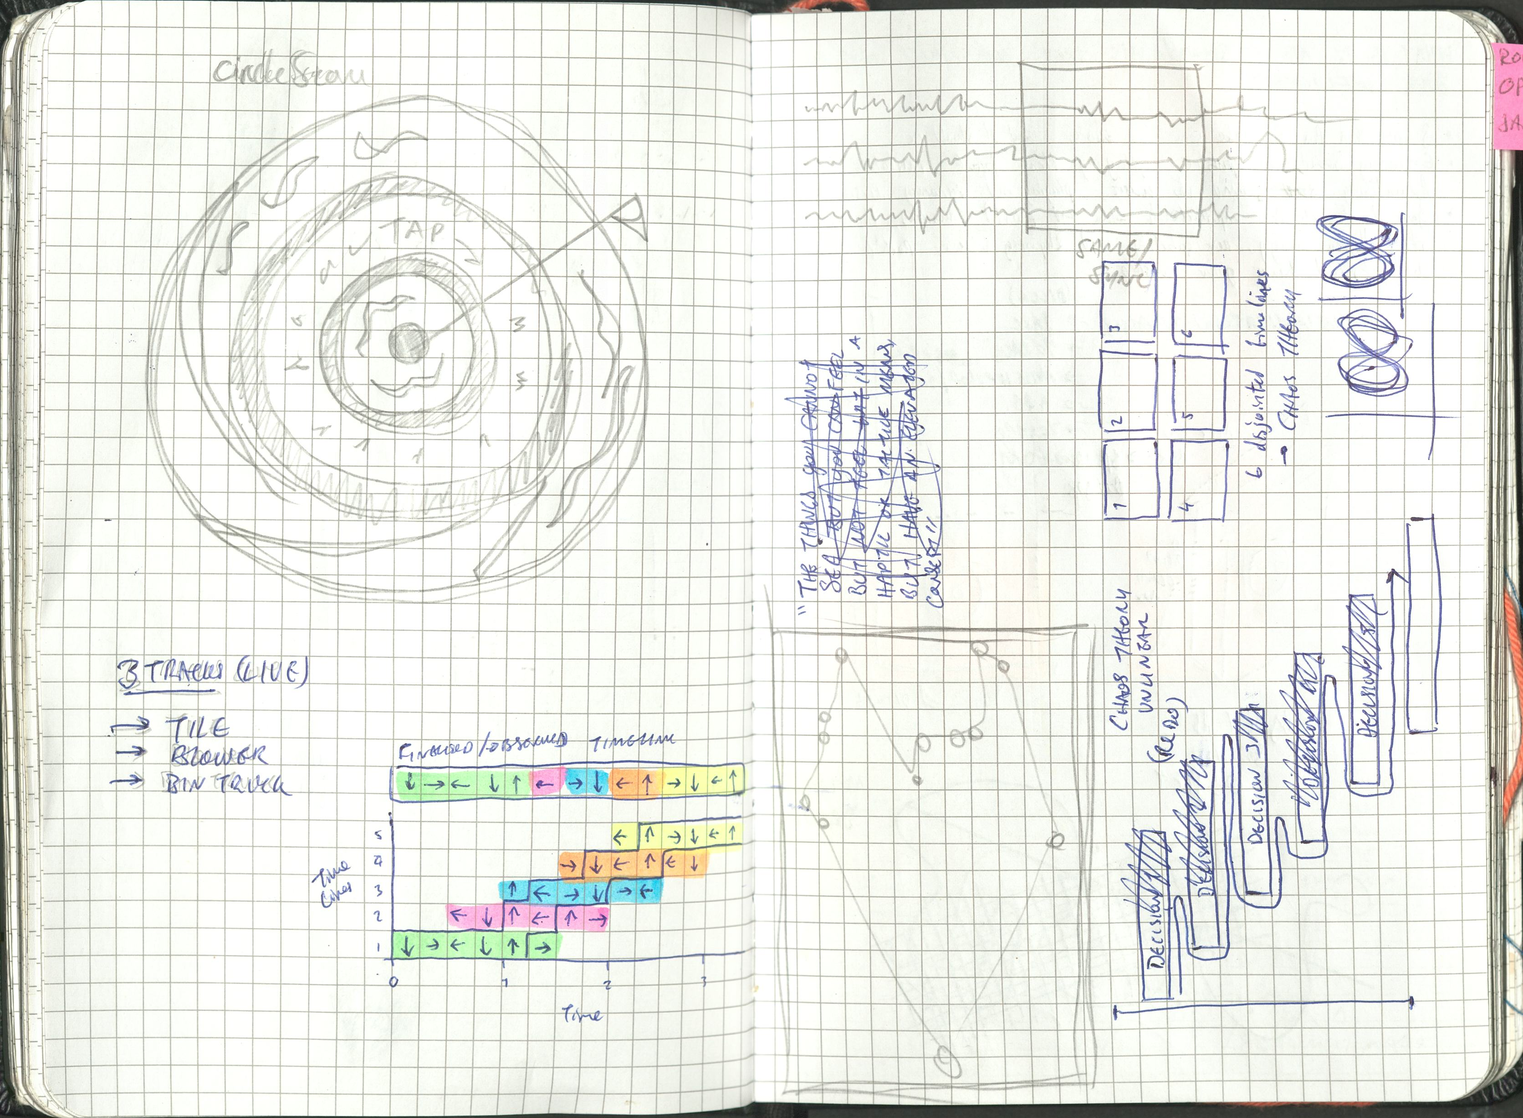 3 TRACKS (LIVE)
→ TILE
→ BLOWER
→ BIN TRUCK
FINALISED/OBSERVED TIMELINE
↓ → ← ↓ ↑ ← → ↓ ← ↑ → ↓ ← ↑
Time
Lines
5 ← ↑ → ↓ ← ↑
4 → ↓ ← ↑ ← ↓
3 ↑ ← → ↓ → ←
2 ← ↓ ↑ ← ↑ →
1 ↓ → ← ↓ ↑ →
0 1 2 3
Time
TAP
SAME/
SYNC
"THE THINGS YOU CANNOT
SEE BUT YOU CAN FEEL
BUT NOT FEEL THAT IN A
HAPTIC OR TACTILE MEANS,
BUT HAVE AN
1 2 3
4 5 6
6 disjointed timelines
→ CHAOS THEORY
CHAOS THEORY
UNLINEAR
(REDO)
DECISION
DECISION
DECISION 3
DECISION
RO
OP
JA